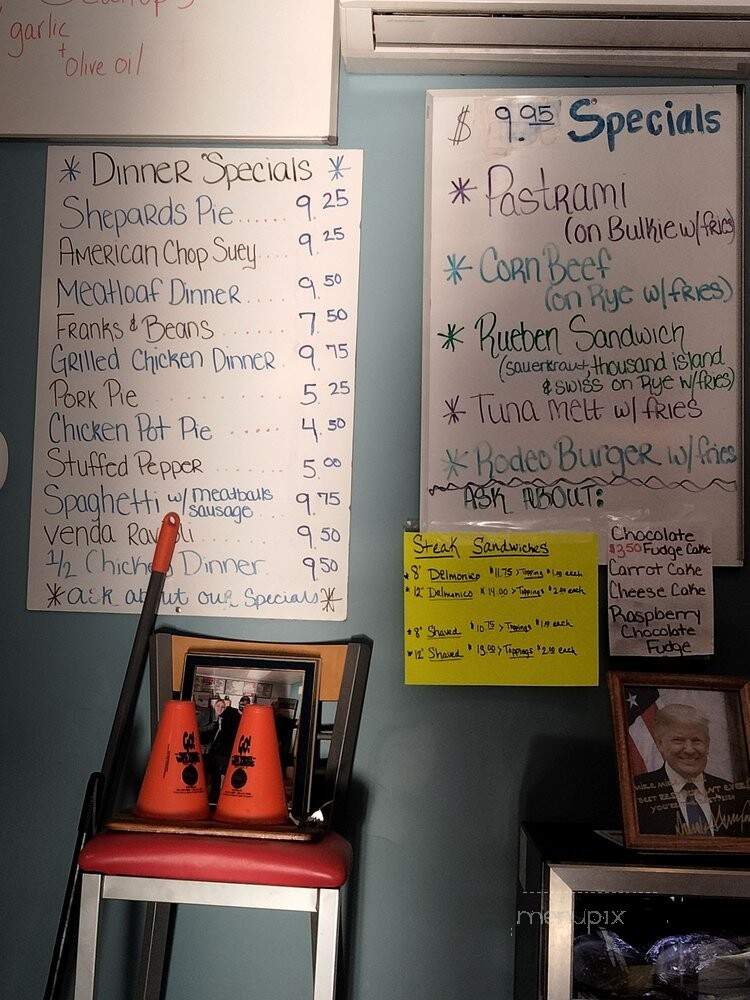 garlic
+
olive oil
* Dinner Specials *
Shepards Pie...... 9.25
American Chop Suey.... 9.25
Meatloaf Dinner...... 9.50
Franks & Beans....... 7.50
Grilled Chicken Dinner. 9.75
Pork Pie............ 5.25
Chicken Pot Pie..... 4.50
Stuffed Pepper...... 5.00
Spaghetti w/ meatballs sausage 9.75
Venda Ravioli 9.50
1/2 Chicken Dinner 9.50
*ask about our Specials*
$ 9.95 Specials
* Pastrami
(on Bulkie w/fries)
* Corn Beef
(on Rye w/fries)
* Rueben Sandwich
(sauerkraut, thousand island
& swiss on Rye w/fries)
* Tuna Melt w/ fries
* Rodeo Burger w/fries
ASK ABOUT:
Steak Sandwiches
8" Delmonico $11.75 > Topping each
12" Delmonico $14.00 > Toppings each
8" Shaved $10.75 > Toppings each
12" Shaved > Toppings each
Chocolate
$3.50 Fudge Cake
Carrot Cake
Cheese Cake
Raspberry
Chocolate
Fudge
GO!
menupix